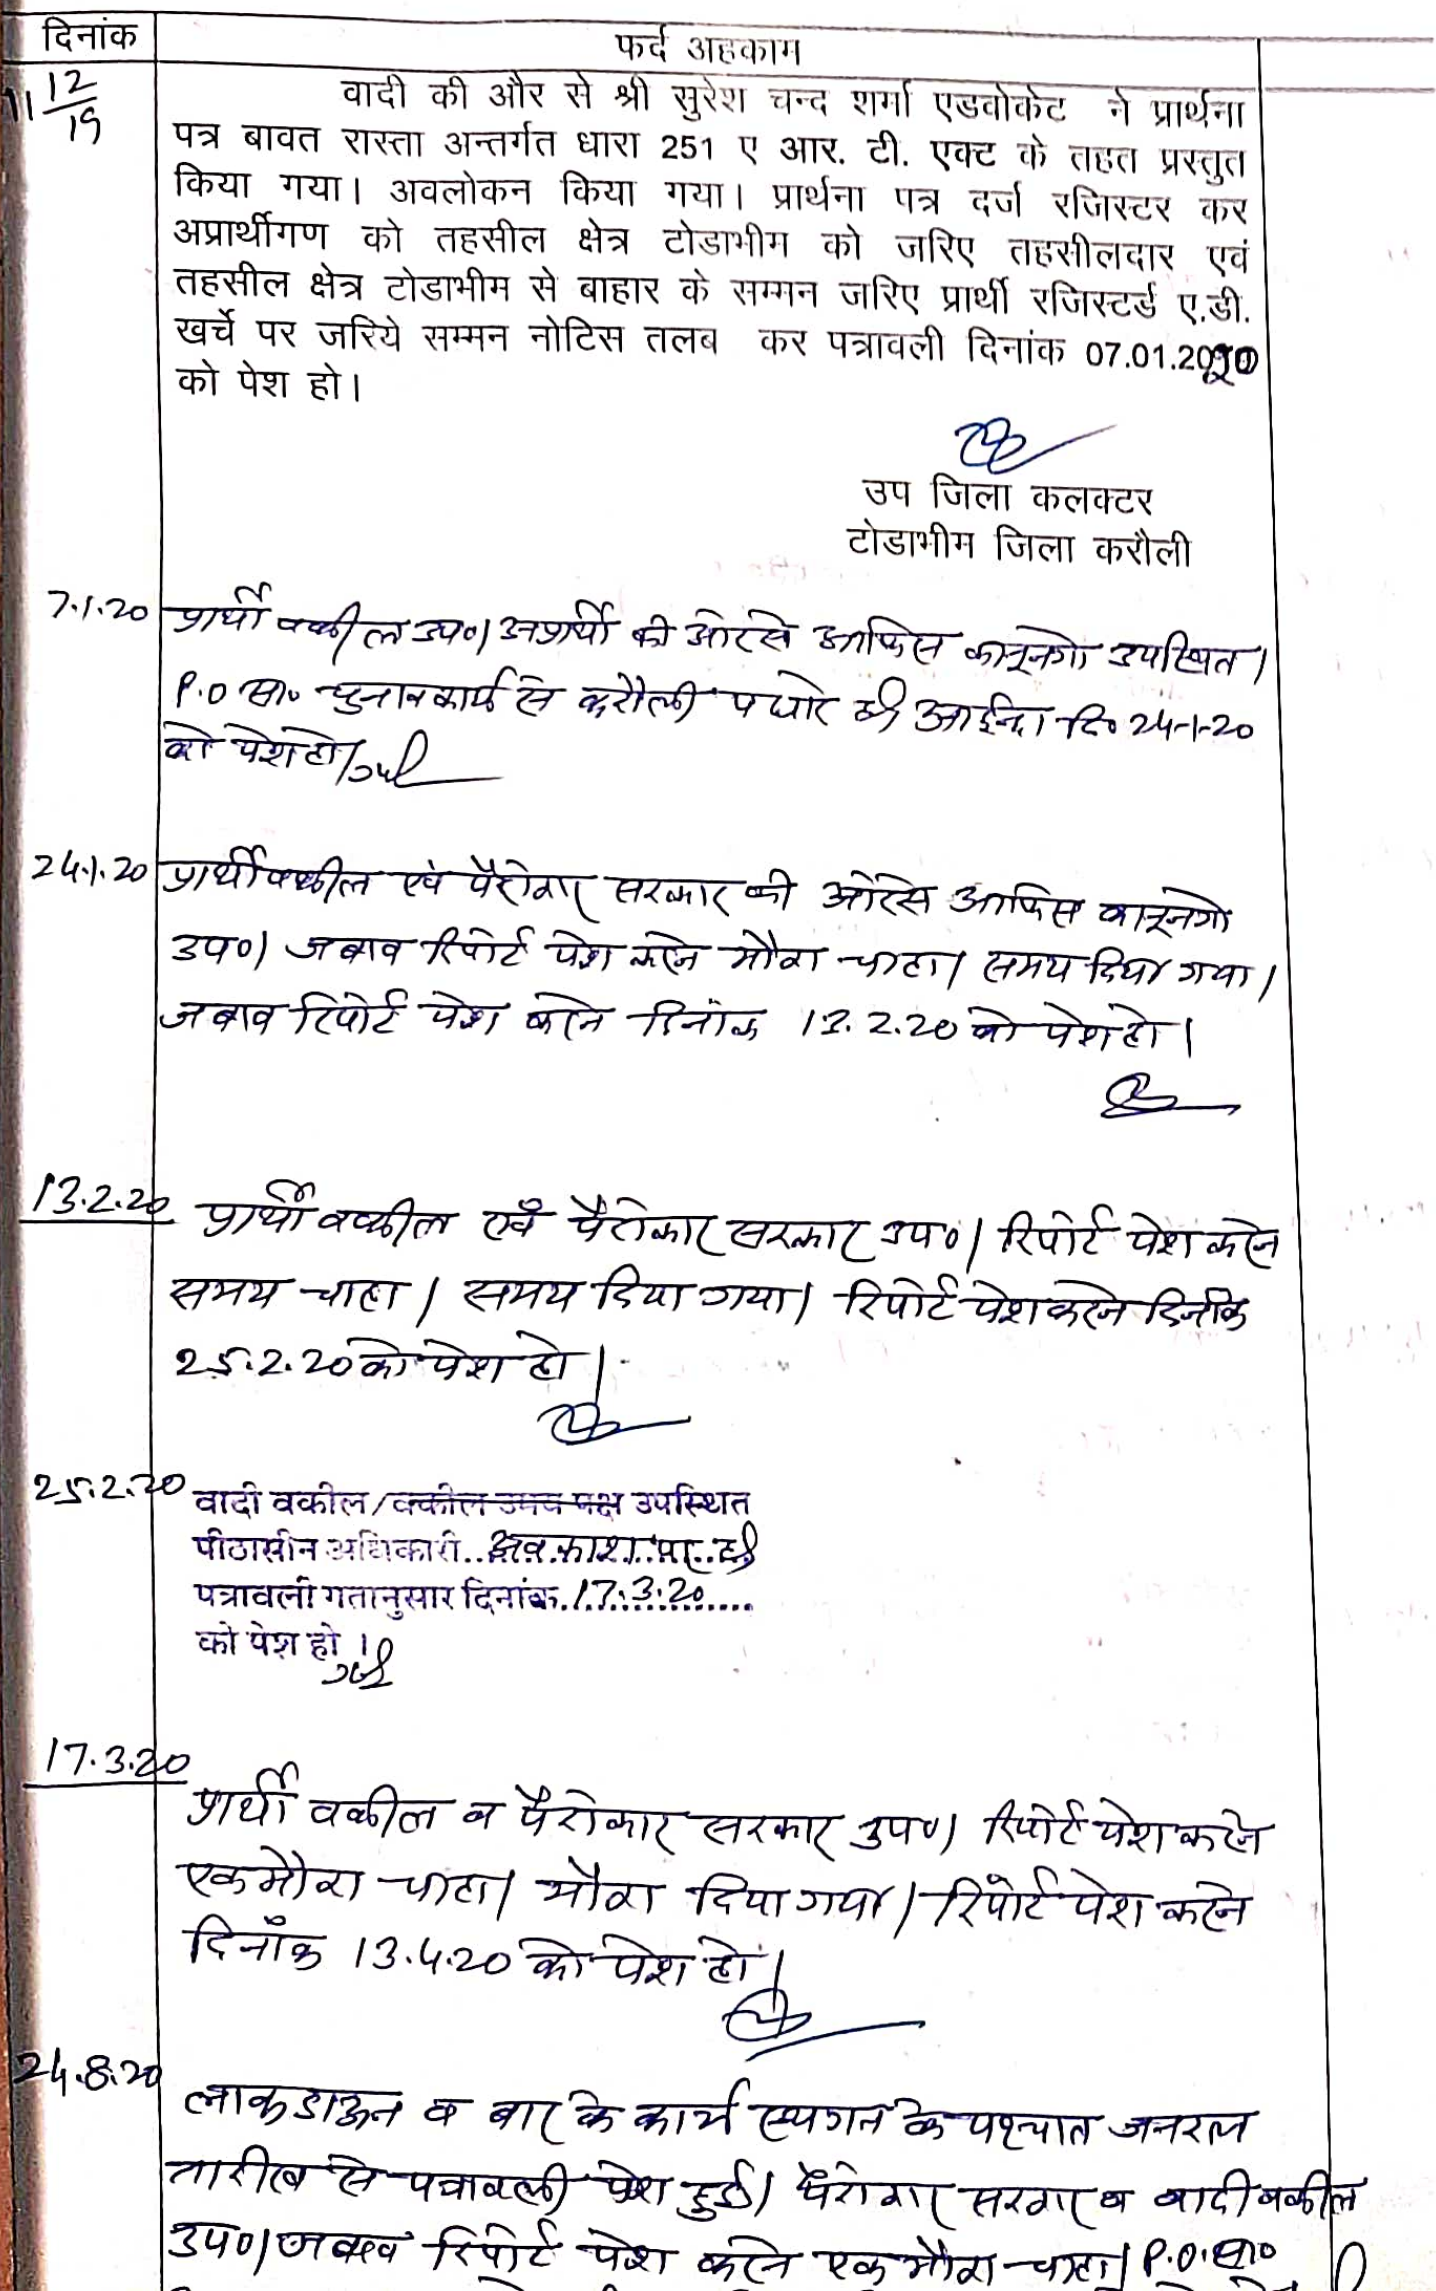 दिनांक
फर्द अहकाम
11 12/19
वादी की और से श्री सुरेश चन्द शर्मा एडवोकेट ने प्रार्थना
पत्र बावत रास्ता अन्तर्गत धारा 251 ए आर. टी. एक्ट के तहत प्रस्तुत
किया गया। अवलोकन किया गया। प्रार्थना पत्र दर्ज रजिस्टर कर
अप्रार्थीगण को तहसील क्षेत्र टोडाभीम को जरिए तहसीलदार एवं
तहसील क्षेत्र टोडाभीम से बाहार के सम्मन जरिए प्रार्थी रजिस्टर्ड ए.डी.
खर्चे पर जरिये सम्मन नोटिस तलब कर पत्रावली दिनांक 07.01.2020
को पेश हो।
उप जिला कलक्टर
टोडाभीम जिला करौली
7.1.20 प्रार्थी वकील उप०। अप्रार्थी की ओर से आफिस कानूनगो उपस्थित।
P.O सा० चुनाव कार्य से करौली पधारे है। आईन्दा दि० 24-1-20
को पेश हो।
24.1.20 प्रार्थी वकील एवं पैरोकार सरकार की ओर से आफिस कानूनगो
उप०। जबाव रिपोर्ट पेश करने मौका चाहा। समय दिया गया।
जबाव रिपोर्ट पेश करने दिनांक 13.2.20 को पेश हो।
13.2.20 प्रार्थी वकील एवं पैरोकार सरकार उप०। रिपोर्ट पेश करने
समय चाहा। समय दिया गया। रिपोर्ट पेश करने दिनांक
25.2.20 को पेश हो।
25.2.20 वादी वकील/वकील उभय पक्ष उपस्थित
पीठासीन अधिकारी..अवकाश पर है।
पत्रावली गतानुसार दिनांक.17.3.20....
को पेश हो।
17.3.20
प्रार्थी वकील व पैरोकार सरकार उप०। रिपोर्ट पेश करने
एक मौका चाहा। मौका दिया गया। रिपोर्ट पेश करने
दिनाँक 13.4.20 को पेश हो।
24.8.20
लाकडाऊन व बार के कार्य स्थगन के पश्चात जनरल
तारीख से पत्रावली पेश हुई। पैरोकार सरकार व वादी वकील
उप०। जबाव रिपोर्ट पेश करने एक मौका चाहा। P.O. सा०